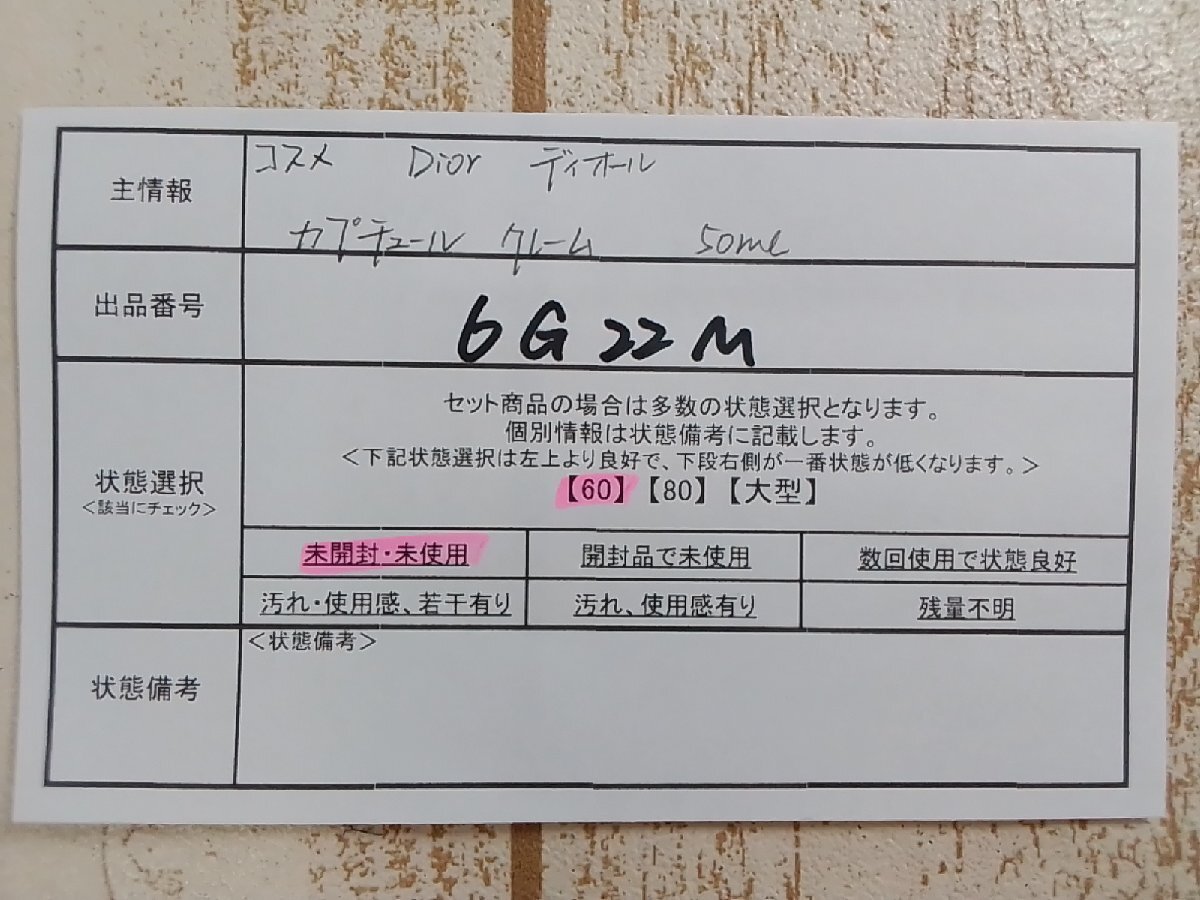 主情報
コスメ Dior ディオール
カプチュール クレーム 50ml
出品番号
6G22M
状態選択
<該当にチェック>
セット商品の場合は多数の状態選択となります。
個別情報は状態備考に記載します。
<下記状態選択は左上より良好で、下段右側が一番状態が低くなります。>
【60】【80】【大型】
未開封・未使用 開封品で未使用 数回使用で状態良好
汚れ・使用感、若干有り 汚れ、使用感有り 残量不明
状態備考
<状態備考>